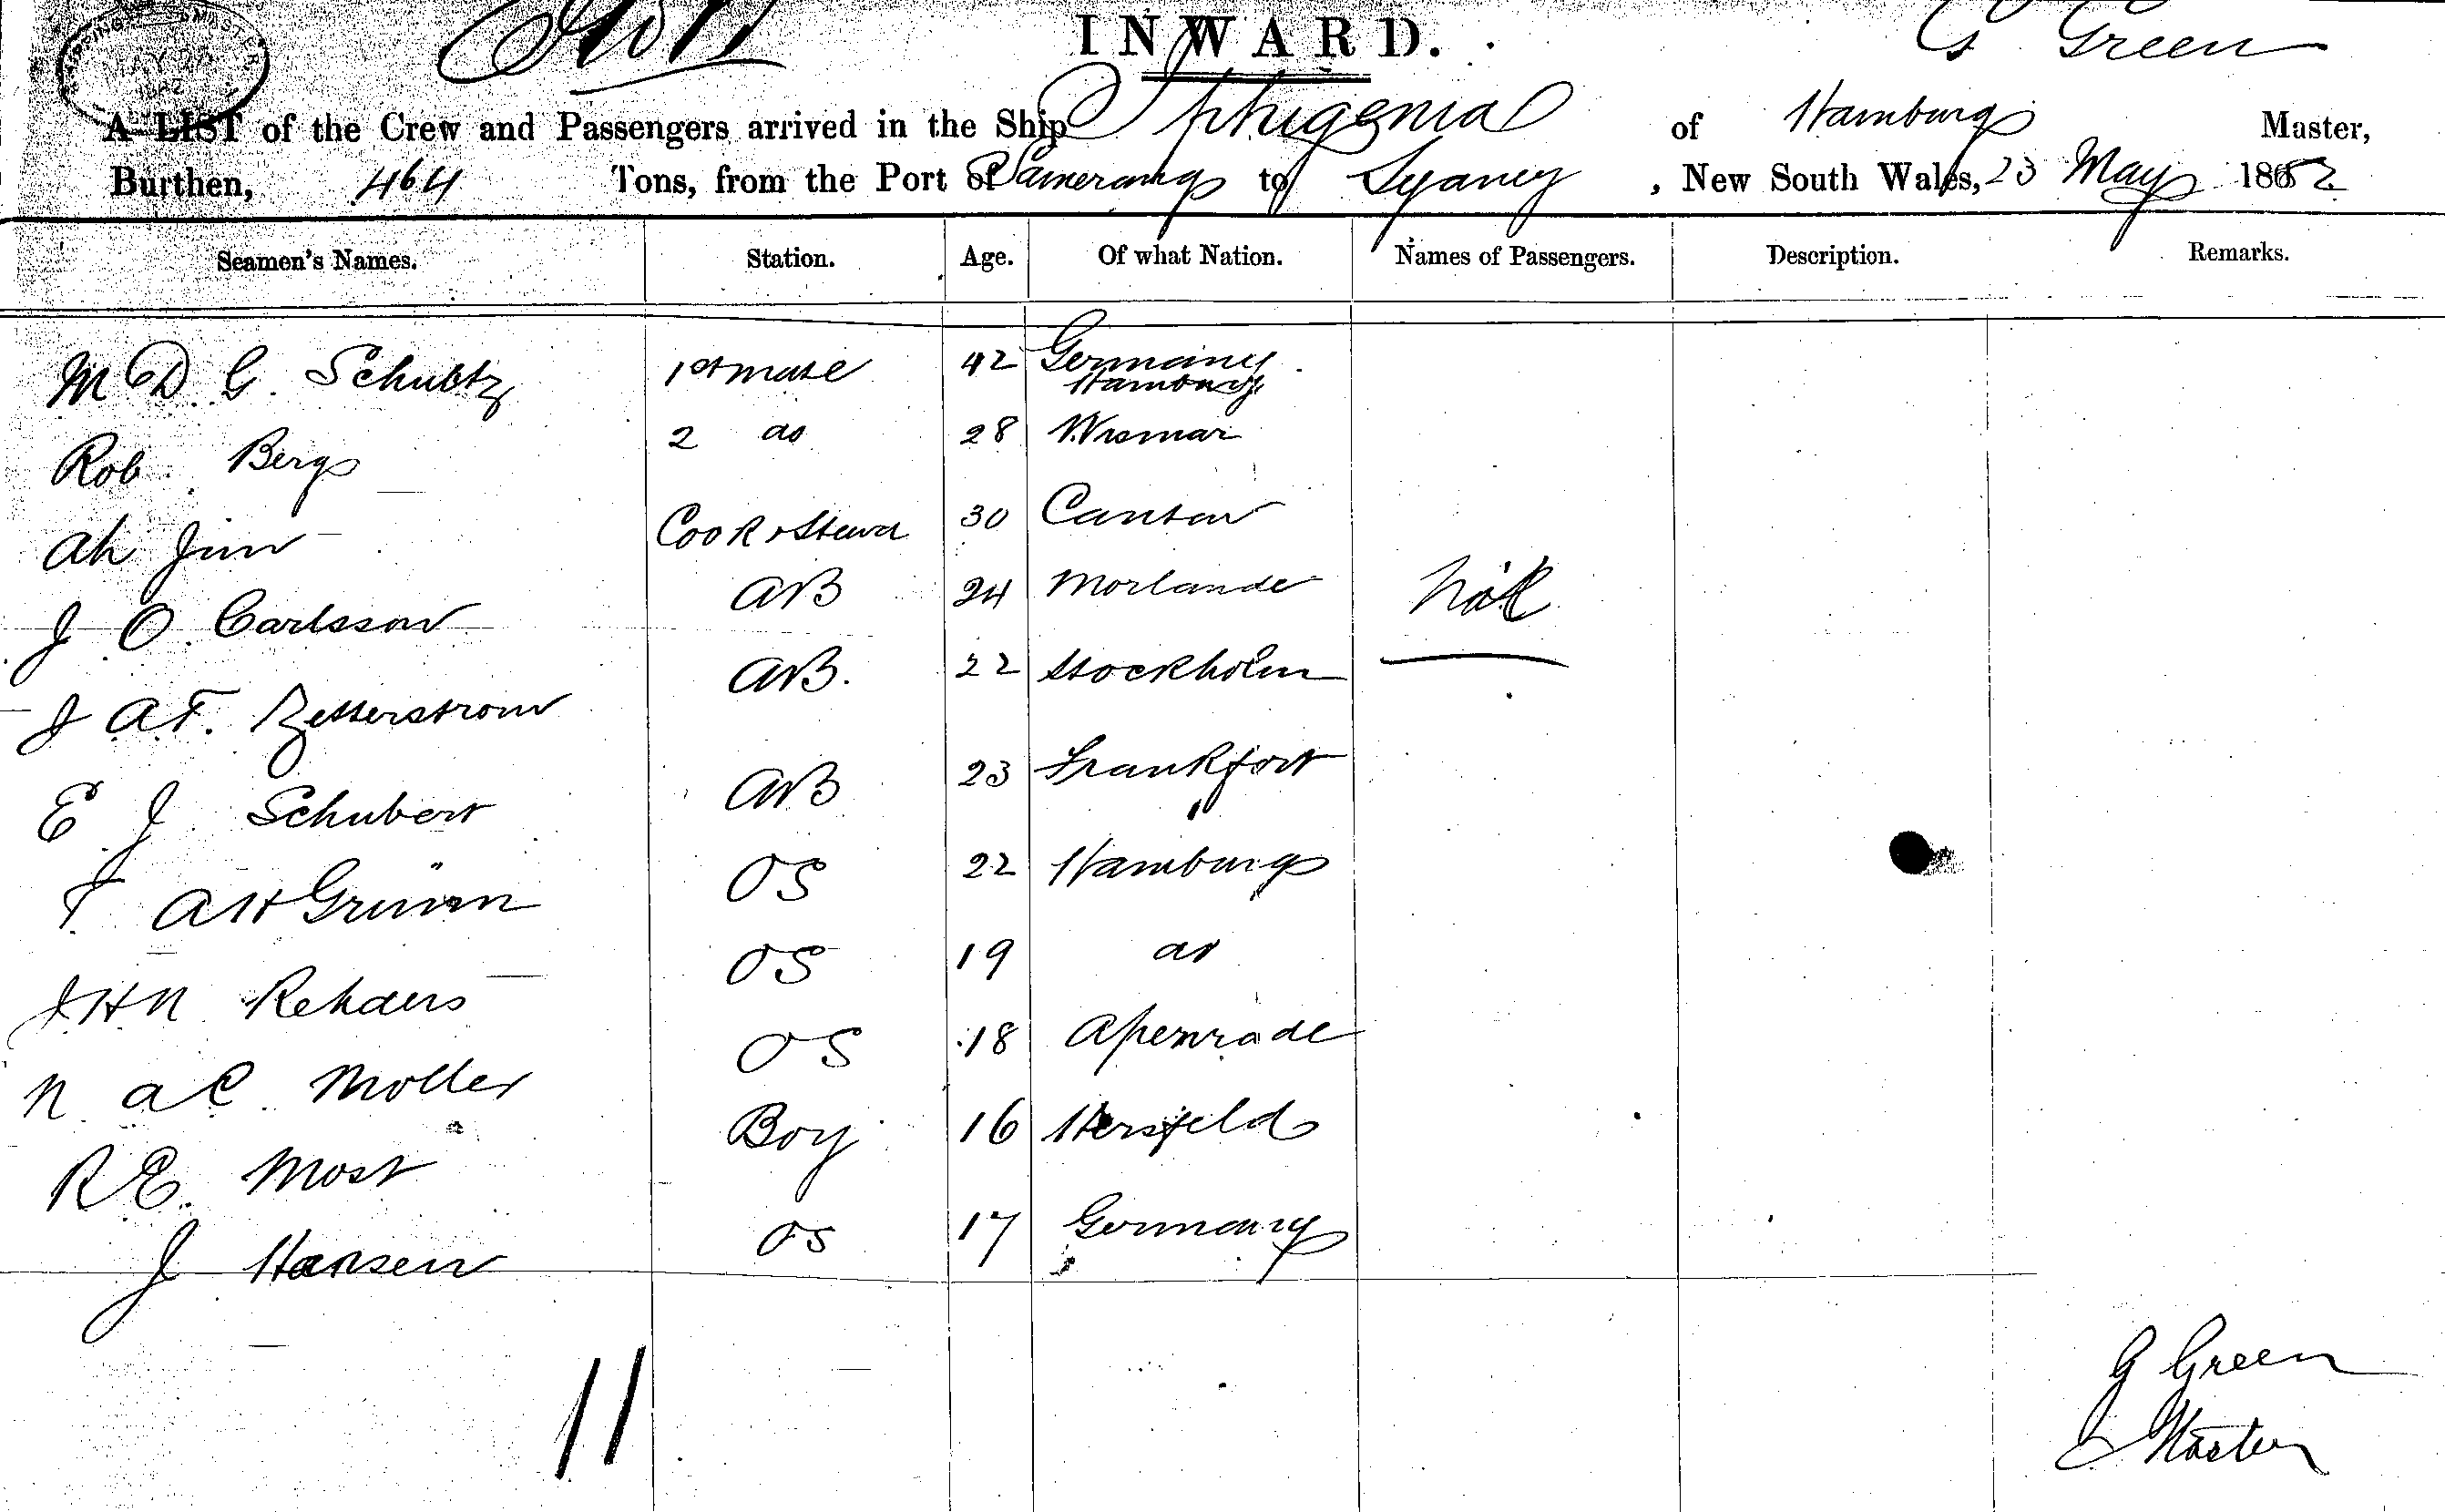 INWARD.
G Green
A LIST of the Crew and Passengers arrived in the Ship Iphigenia of Hamburg Master,
Burthen, 464 Tons, from the Port of Samerang to Sydney, New South Wales, 23 May 1882
Seamen's Names. Station. Age. Of what Nation. Names of Passengers. Description. Remarks.
M D G. Schultz 1st mate 42 Germany
Hamburg
Rob. Berg 2 do 28 Wismar
Ah Jim Cook & Stewd 30 Canton
J O. Carlsson AB 24 Morlande Nil
J A F. Zetterstrom AB. 22 Stockholm
E J. Schubert AB 23 Frankfort
F A H Grimm OS 22 Hamburg
J H N Rehders OS 19 do
N A C Moller OS 18 Apenrade
R E. Most Boy 16 Hersfeld
J Hansen OS 17 Germany
11
G Green
Master